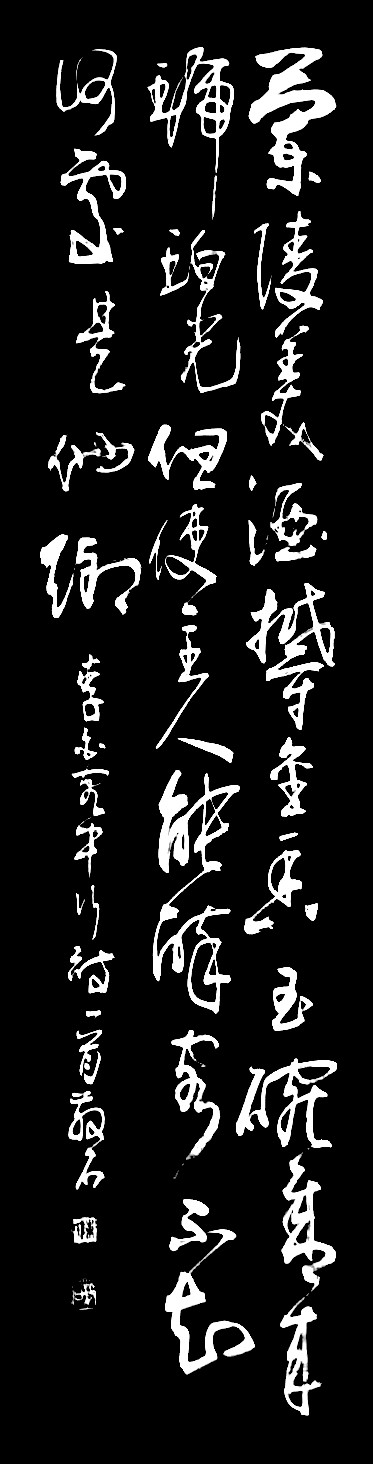 蘭陵美酒鬱金香玉碗盛來
琥珀光但使主人能醉客不知
何處是他鄉
李白客中行詩一首